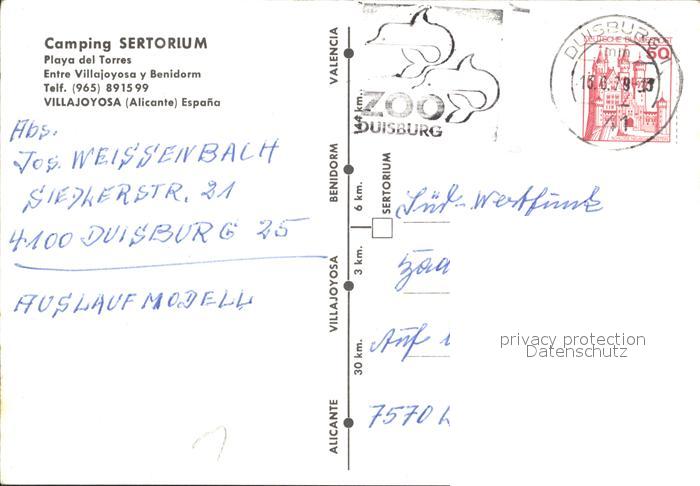 Camping SERTORIUM
Playa del Torres
Entre Villajoyosa y Benidorm
Telf. (965) 891599
VILLAJOYOSA (Alicante) España
Abs.
Jos. WEISSENBACH
SIEDLERSTR. 21
4100 DUISBURG 25
AUSLAUFMODELL
VALENCIA
km.
BENIDORM
6 km.
SERTORIUM
3 km.
VILLAJOYOSA
30 km.
ALICANTE
ZOO
DUISBURG
DUISBURG
DEUTSCHE BUNDESPOST
Süd-Westfunk
Auf
7570
privacy protection
Datenschutz